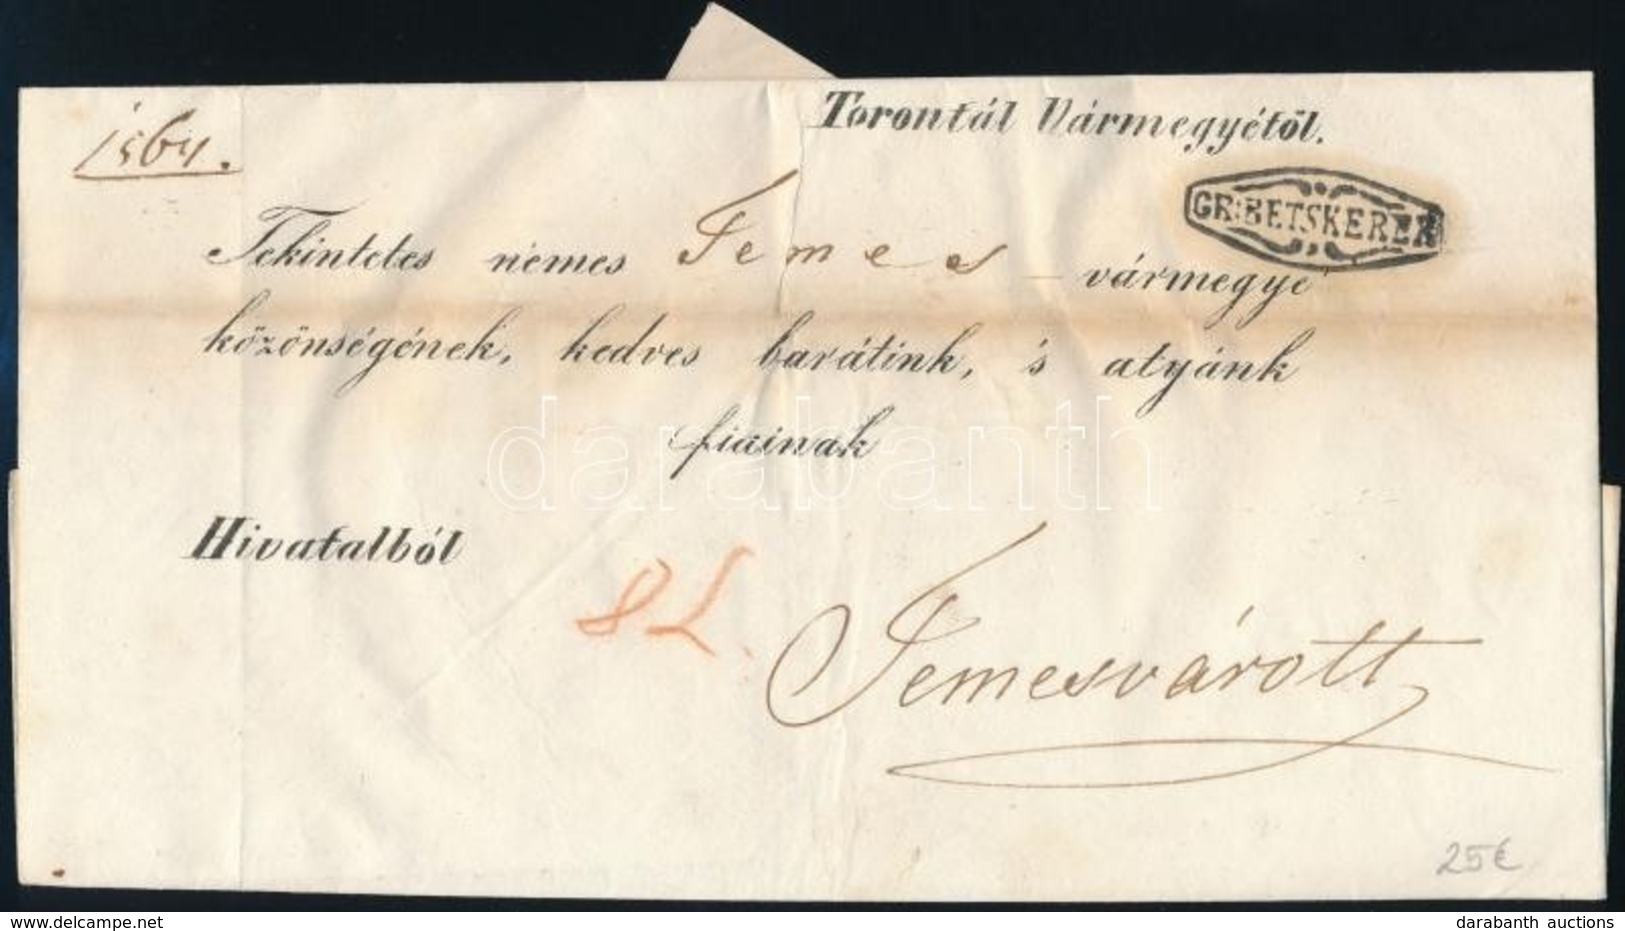 Torontál Vármegyétől.
1564.
GR:BETSKEREK
Tekintetes nemes Temes vármegye
közönségének, kedves barátink, 's atyánk
fiainak
darabanth
Hivatalból
Temesvárott
25€
www.delcampe.net
darabanth auctions